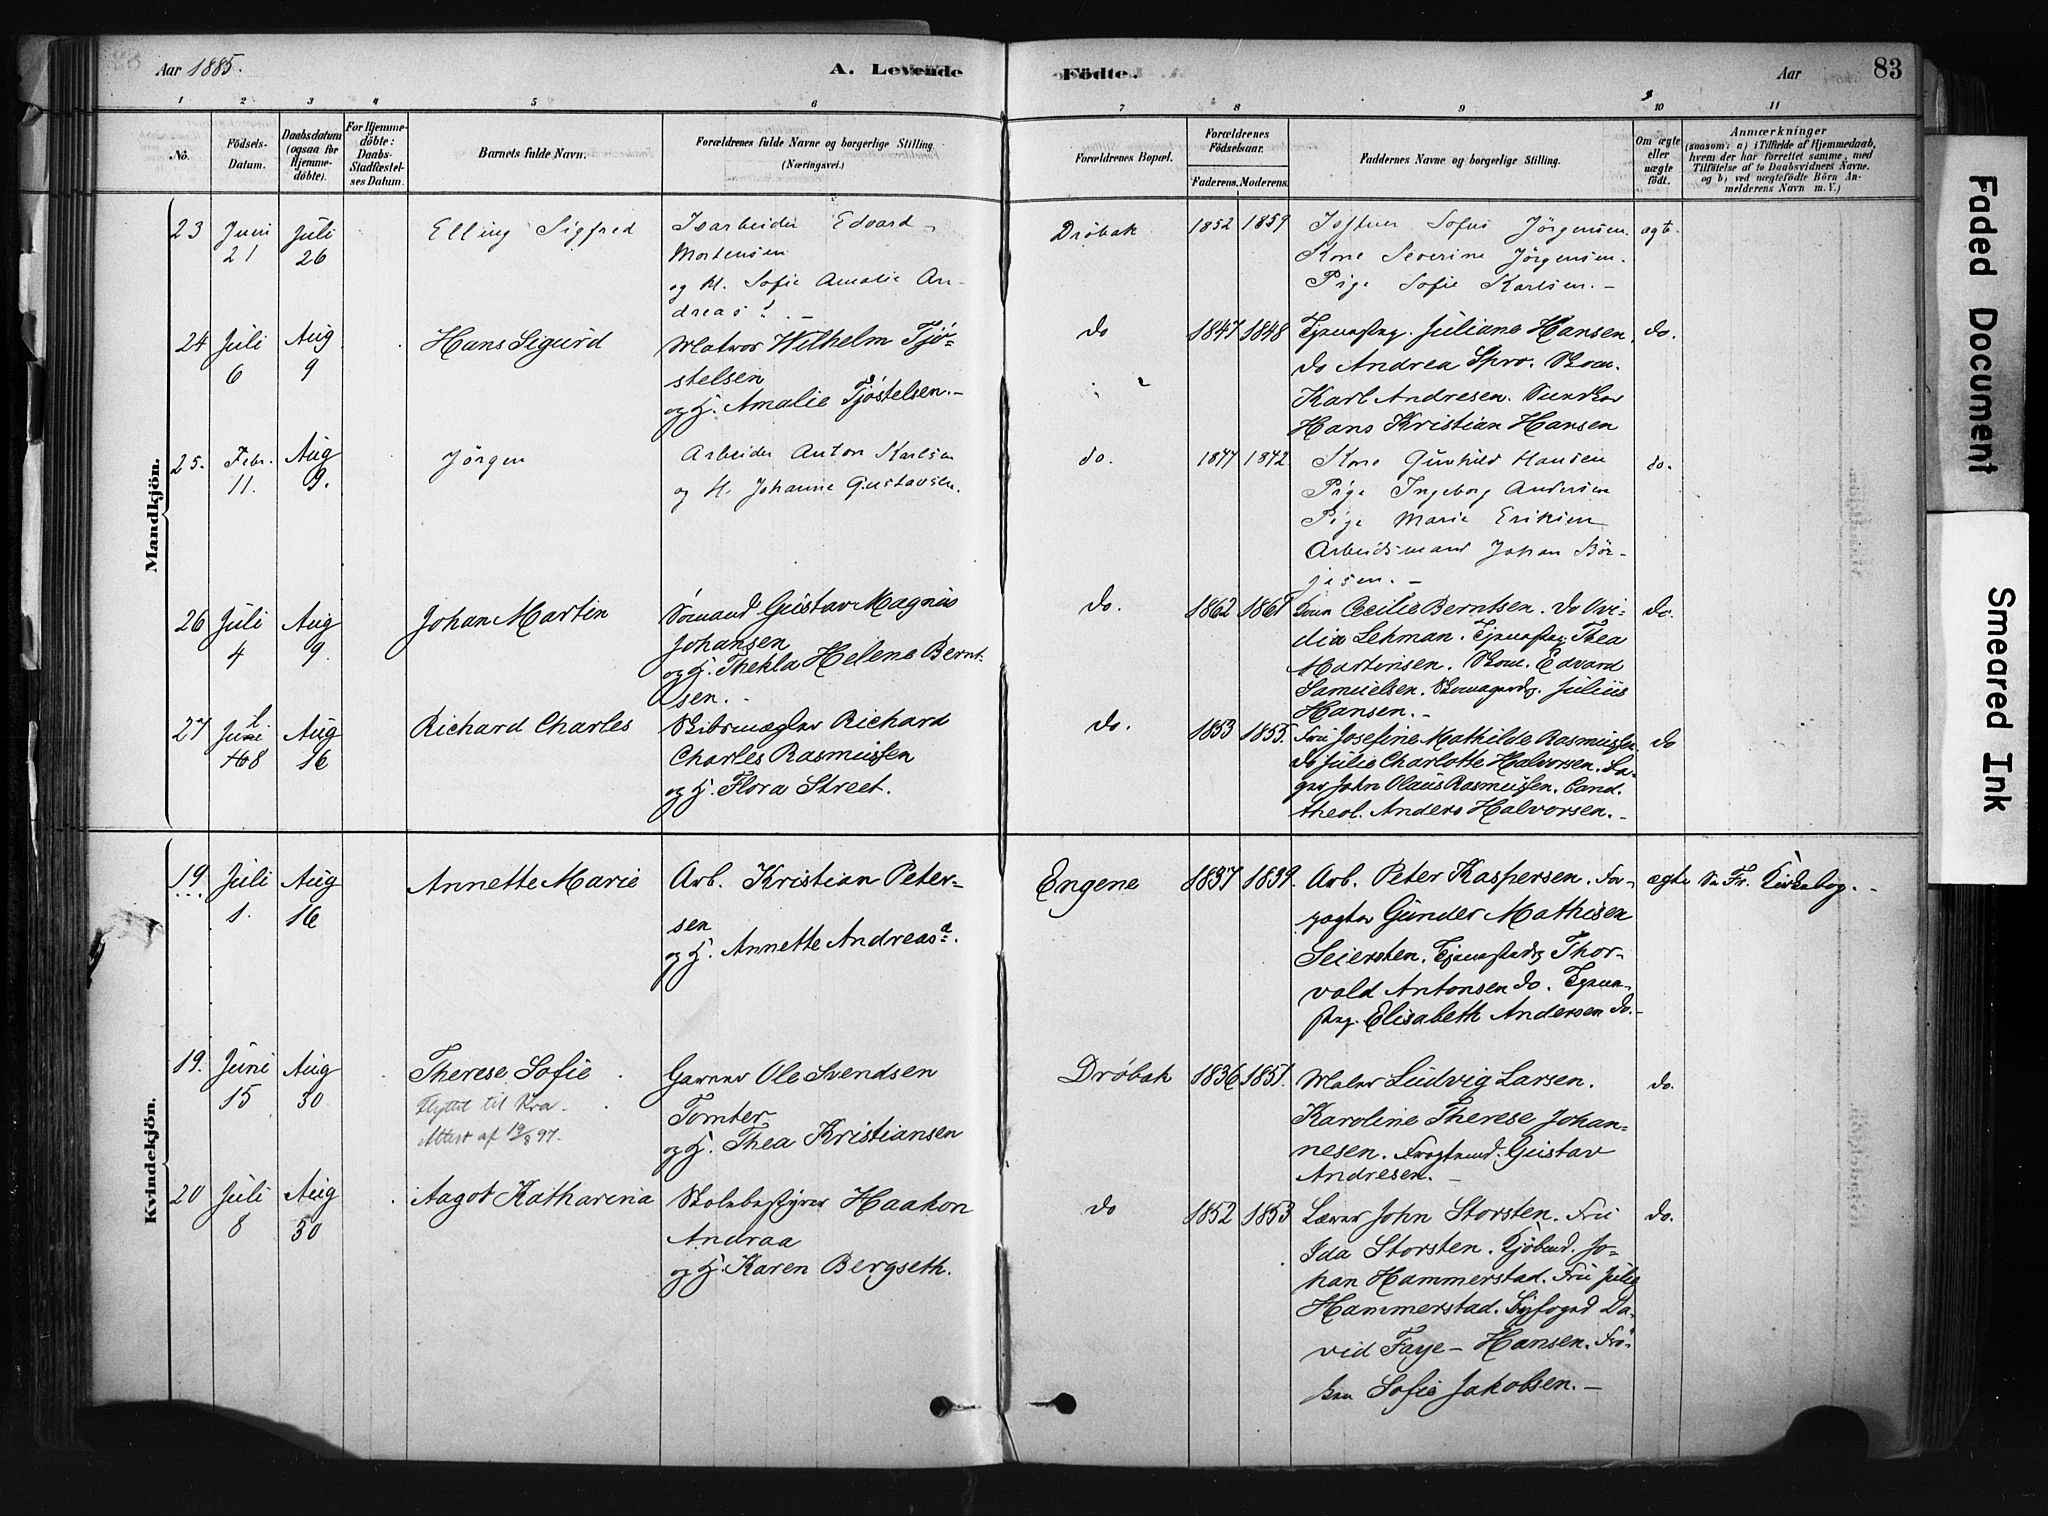 Aar 1885.
A. Levende Födte.
Aar
83
1 2 3 4 5 6 7 8 9 10 11
No.
Födsels-Datum.
Daabsdatum (ogsaa for Hjemme-döbte).
For Hjemme-döbte: Daabs-Stadfæstel-ses Datum.
Barnets fulde Navn.
Forældrenes fulde Navne og borgerlige Stilling (Næringsvei.)
Forældrenes Bopæl.
Forældrenes Födselsaar.
Faderens. Moderens.
Faddernes Navne og borgerlige Stilling.
Om ægte eller uægte födt.
Anmærkninger
(saasom: a) i Tilfælde af Hjemmedaab, hvem der har forrettet samme, med Tilföielse af to Daabsvidners Navne, og b) ved uægtefödte Börn An-melderens Navn m. V.)
Mandkjön.
23 Juni 21 Juli 26 Elling Sigfred
Isarbeider Edvard
Mortensen
og H. Sofie Amalie An-
dreas
Dröbak 1852 1859
Sofus Jörgensen
Kone Severine Jörgensen.
Pige Sofie Karlsen. –
ægt.
24 Juli 6 Aug 9 Hans Sigurd
Matros Wilhelm Tjö-
stelsen
og H. Amalie Tjöstelsen. –
do 1847 1848
Juliane Hansen.
do Andrea Spro.
Karl Andresen.
Hans Kristian Hansen
do.
25. Febr. 11. Aug 9. Jörgen
Arbeider Anton Karlsen
og H. Johanne Gustavsen.
do. 1842
Kone Gunhild Hansen
Pige Ingeborg Andersen
Pige Marie Eriksen
Arbeidsmand Johan Bör-
jesen. –
do.
26 Juli 4 Aug 9. Johan Martin
Sömand Gustav Magnus
Johansen
og H. Thekla Helene Bernt-
sen. –
do. 1862 1861
Cecilie Berntsen. do Ovi-
dia Lehman. Thea
Martinsen. Edvard
Samuelsen. Julius
Hansen. –
do.
27 Juli 8 Aug 16 Richard Charles
Skibsmægler Richard
Charles Rasmussen
og H. Flora Street.
do. 1853 1855.
Fru Josefine Mathilde Rasmussen
do Julie Charlotte Halvorsen.
John Olaus Rasmussen. Cand.
theol. Anders Halvorsen. –
do
Kvindekjön.
19 Juli 1. Aug 16 Annette Marie
Arb. Kristian Peter-
sen
og H. Annette Andreasa.
Engene 1837 1839.
Arb. Peter Kaspersen. For-
pagter Gunder Mathisen
Seiersten. Thor-
vald Antonsen do.
Elisabeth Andersen do. –
ægte
Se Fr. Kirkebog. –
19. Juni 15 Aug 30 Therese Sofie
Flyttet til Kra.
Attest af 19/8 97.
Garver Ole Svendsen
Tomter
og H. Thea Kristiansen
Dröbak 1836 1851.
Maler Ludvig Larsen.
Karoline Therese Johan-
nesen. Gustav
Andresen. –
do.
20 Juli 8 Aug 30 Aagot Katharina
Skolebestyrer Haakon
Andraa
og H. Karen Bergseth.
do 1852 1853
Lærer John Storsten. Fru
Ida Storsten. Kjöbmd. Jo-
han Hammerstad. Fru Julie
Hammerstad. Byfoged Da-
vid Faye – Hansen. Frö-
ken Sofie Jakobsen. –
do.
Faded Document
Smeared Ink